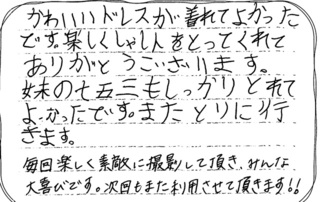 かわいいドレスが着れてよかった
です。楽しくしゃしんをとってくれて
ありがとうございります。
妹の七五三もしっかりとれて
よかったです。またとりに行
きます。
毎回楽しく素敵に撮影して頂き、みんな
大喜びです。次回もまた利用させて頂きます!!